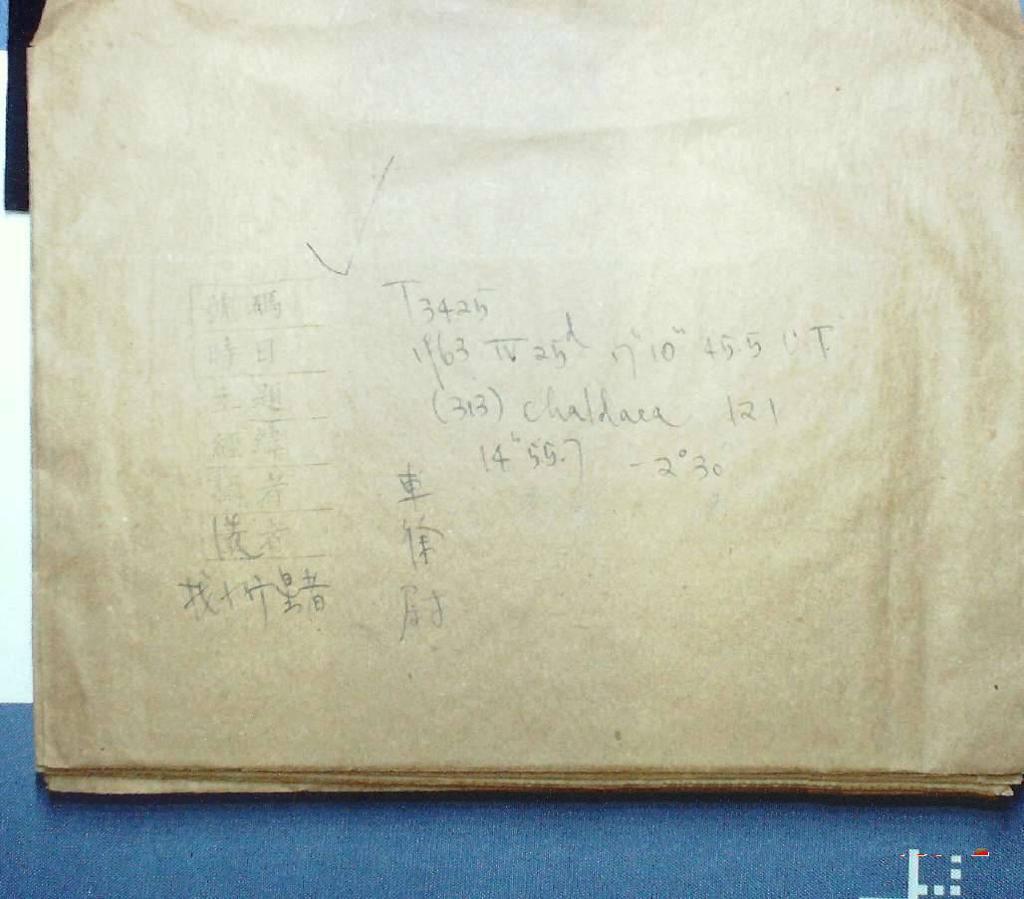 號碼 T3425
時日 1963 IV 25d 17h 10m 45.5 U.T.
主題 (313) Chaldaea 121
經緯 14h 55.7 -2°30
者 車
者 徐
找 星者 尉